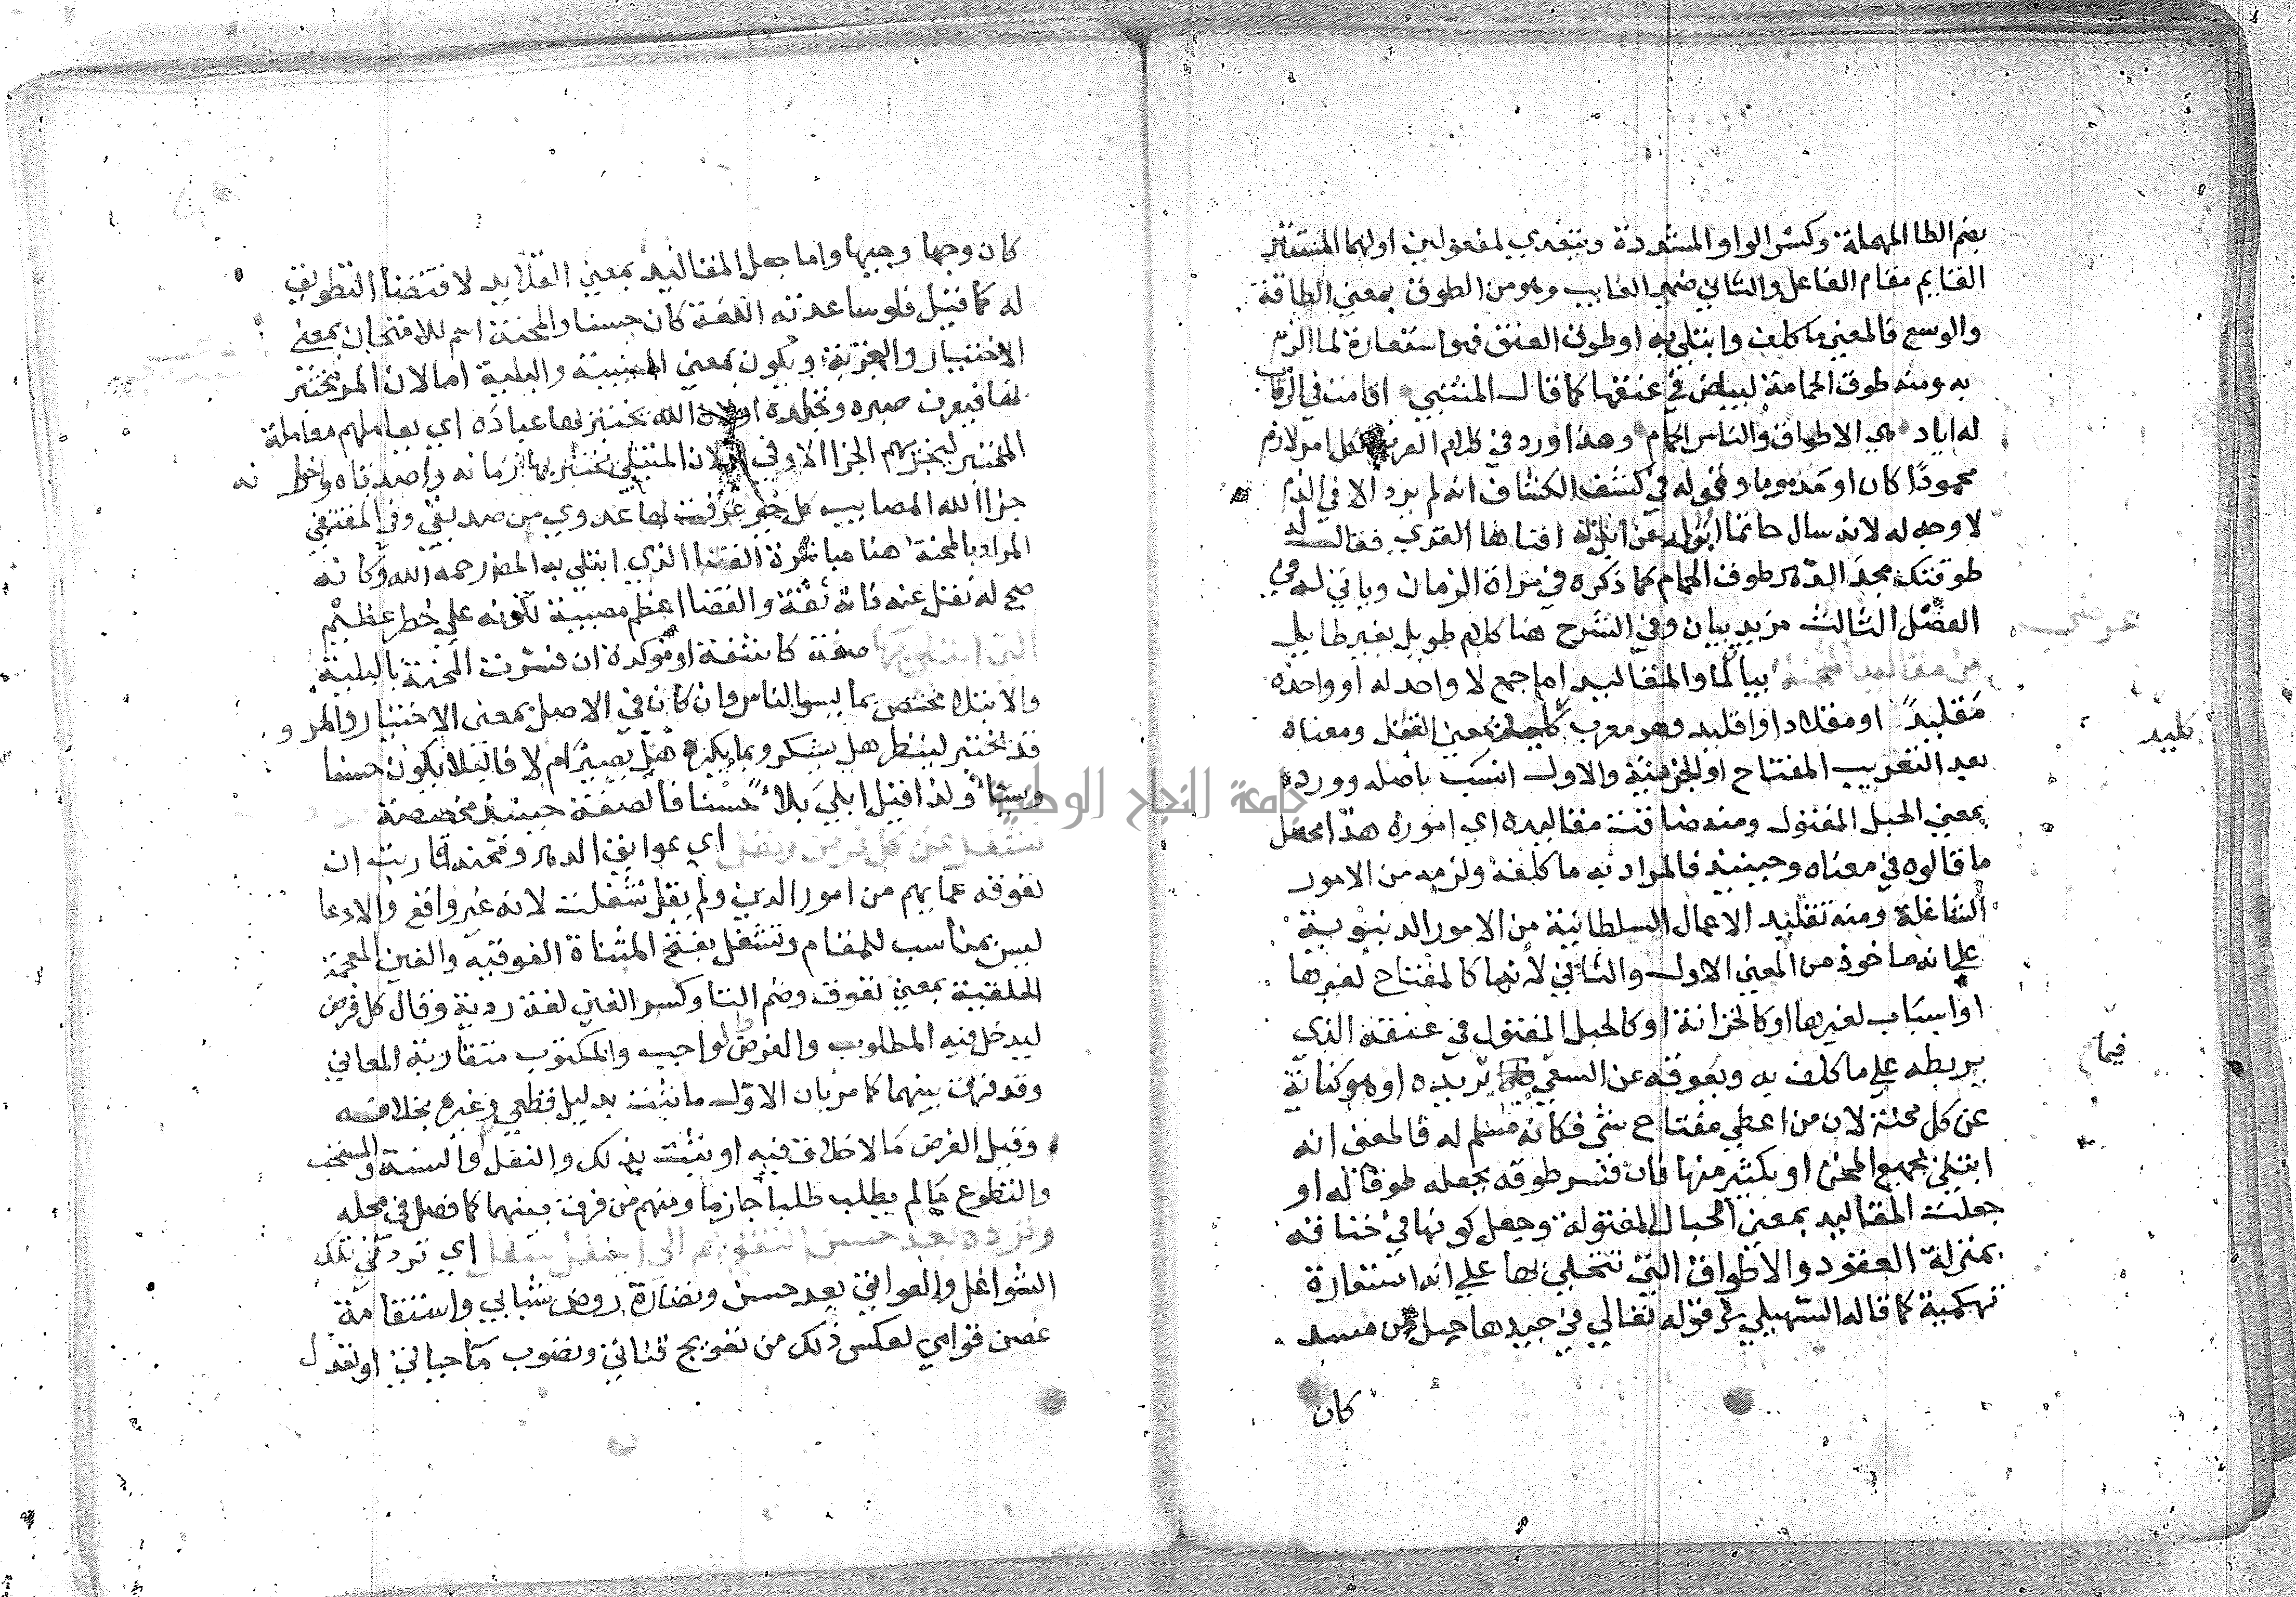 بضم الطا المهملة وكسر الواو المشددة ويتعدي لمفعولين اولهما المستتر
القايم مقام الفاعل والثاني ضمير الغايب وهو من الطوق بمعني الطاقة
والوسع فالمعني ما كلف وابتلي به او طوق العنق فهو استعارة لما الزم
به ومنه طوق الحمامة لبياض في عنقها كما قال المتنبي اقامت في الرقاب
له اياد هي الاطواق والناس الحمام وهذا ورد في كلام العرب لكل امر لازم
محمودا كان او مذموما وقوله في كشف الكشاف انه لم يرد الا في الذم
لا وجه له لانه سال حاتما ابوه عن ابل له افناها القري فقال له
طوقتك مجد الدهر طوق الحمام كما ذكره في مراة الزمان وياتي له في
الفصل الثالث مزيد بيان وفي الشرح هنا كلام طويل بغير طايل
من مقاليد المحنة بيا لما والمقاليد اما جمع لا واحد له او واحده
مقليد او مقلاد او اقليد وهو معرب كليد بمعني القفل ومعناه
كليد
بعد التعريب المفتاح او الخزينة والاول انسب باصله وورد
بمعني الحبل المفتول ومنه ضاقت مقاليده اي اموره هذا محصل
ما قالوه في معناه وحينيذ فالمراد به ما كلفه ولزمه من الامور
الشاغلة ومنه تقليد الاعمال السلطانية من الامور الدنيوية
علي انه ماخوذ من المعني الاول والثاني لانها كالمفتاح لغيرها
او اسباب لغيرها او كالخزانة او كالحبل المفتول في عنقه الذي
يربطه علي ما كلف به ويعوقه عن السعي يريده او هو كناية
فيما
عن كل محنة لان من اعطي مفتاح شي فكانه مسلم له فالمعني انه
ابتلي بجميع المحن او بكثير منها فان فسر طوقه بجعله طوقا له او
جعلت المقاليد بمعني الحبال المفتولة وجعل كونها في خناقه
بمنزلة العقود والاطواق التي تتحلي بها علي انه استعارة
تهكمية كما قاله السهيلي في قوله تعالي في جيدها حبل من مسد
كان
كان وجها وجيها واما جعل المقاليد بمعني القلايد لاقتضا التطويق
له كما قيل فلو ساعدته اللغة كان حسنا والمحنة اسم للامتحان بمعني
الاختبار والتجربة ويكون بمعني المصيبة والبلية اما لان المر يختبر
بها فيعرف صبره وتجلده او لان الله يختبر بها عباده اي يعاملهم معاملة
المختبر ليجزيهم الجزا الاوفي او لان المبتلي يختبر بها زمانه واصدقاه واخوانه
جزا الله المصايب كل خير عرفت بها عدوي من صديقي وفي المقتفي
المراد بالمحنة هنا مباشرة القضا الذي ابتلي به المص رحمه الله وكانه
صح له نقل عنه فانه ثقة والقضا اعظم مصيبة لكونه علي خطر عظيم
التي ابتلي بها صفة كاشفة او موكدة ان فسرت المحنة بالبلية
والابتلا مختص بما يسوا الناس وان كان في الاصل بمعني الاختبار والمر و
قد يختبر لينظر هل يشكر وبما يكره هل يصبر ام لا فالبلا يكون حسنا
وسيا ولذا قيل ابلي بلا حسنا فالصفة حينيذ مخصصة
تشغل عن كل فرض ونفل اي عوايق الدهر ومحنه قاربت ان
تعوقه عما يهم من امور الدين ولم يقل شغلت لانه غير واقع والادعا
ليس بمناسب للمقام وتشغل بفتح المثناة الفوقية والغين المعجمة
الحلقية بمعني تعوق وضم التا وكسر الغين لغة ردية وقال كل فرض
ليدخل فيه المطلوب والفرض والواجب والمكتوب متقاربة المعاني
وقد فرق بينهما كما مر بان الاول ما ثبت بدليل قطعي وغيره بخلافه
وقيل الفرض ما لا خلاف فيه او يثبت بذلك والنفل والسنة والمستحب
والتطوع ما لم يطلب طلبا جازما ومنهم من فرق بينهما كما فصل في محله
وترد بعد حسن التقويم الي اسفل سفل اي تردني تلك
الشواغل والعوايق بعد حسن ونضارة روض شبابي واستقامة
غصن قوامي لعكس ذلك من تعويج قناتي ونضوب ما حياتي او تعدل
جامعة النجاح الوطنية